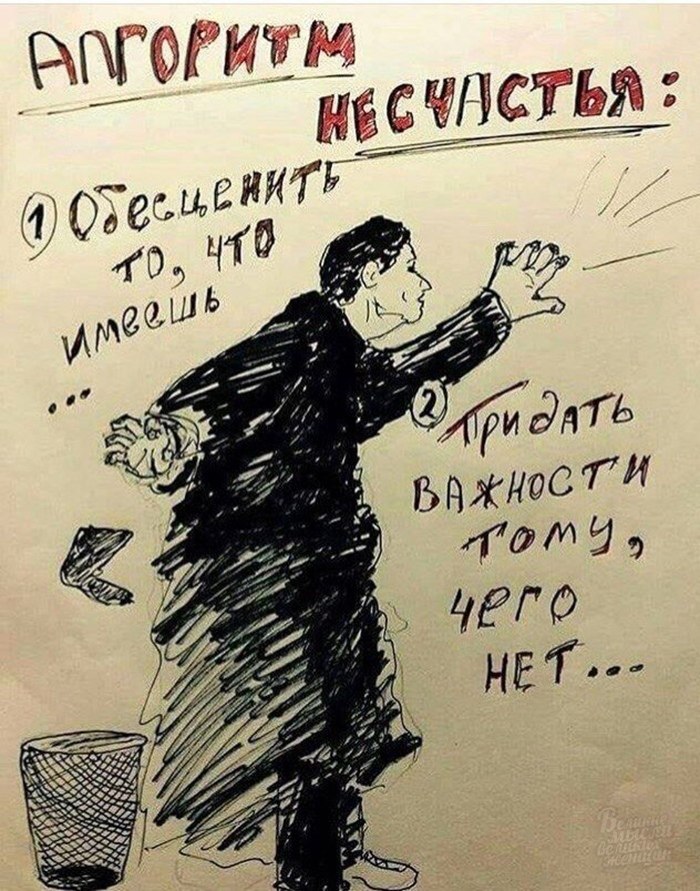 АЛГОРИТМ
НЕСЧАСТЬЯ:
1 Обесценить
то, что
имеешь
...
2 Придать
важности
тому,
чего
нет...
Великие
мысли
великих
женщин